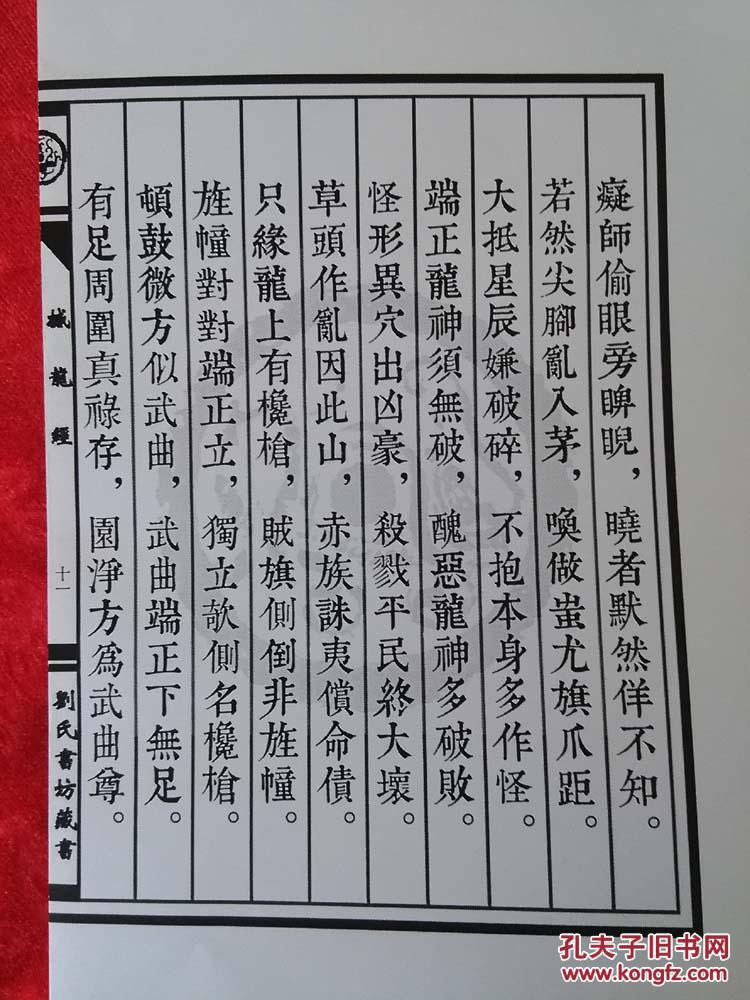 癡師偷眼旁睥睨，曉者默然佯不知。
若然尖腳亂入茅，喚做蚩尤旗爪距。
大抵星辰嫌破碎，不抱本身多作怪。
端正龍神須無破，醜惡龍神多破敗。
怪形異穴出凶豪，殺戮平民終大壞。
草頭作亂因此山，赤族誅夷償命債。
只緣龍上有欃槍，賊旗側倒非旌幢。
旌幢對對端正立，獨立欹側名欃槍。
頓鼓微方似武曲，武曲端正下無足。
有足周圍真祿存，園淨方為武曲尊。
撼龍經
十一
劉氏書坊藏書
孔夫子旧书网
www.kongfz.com